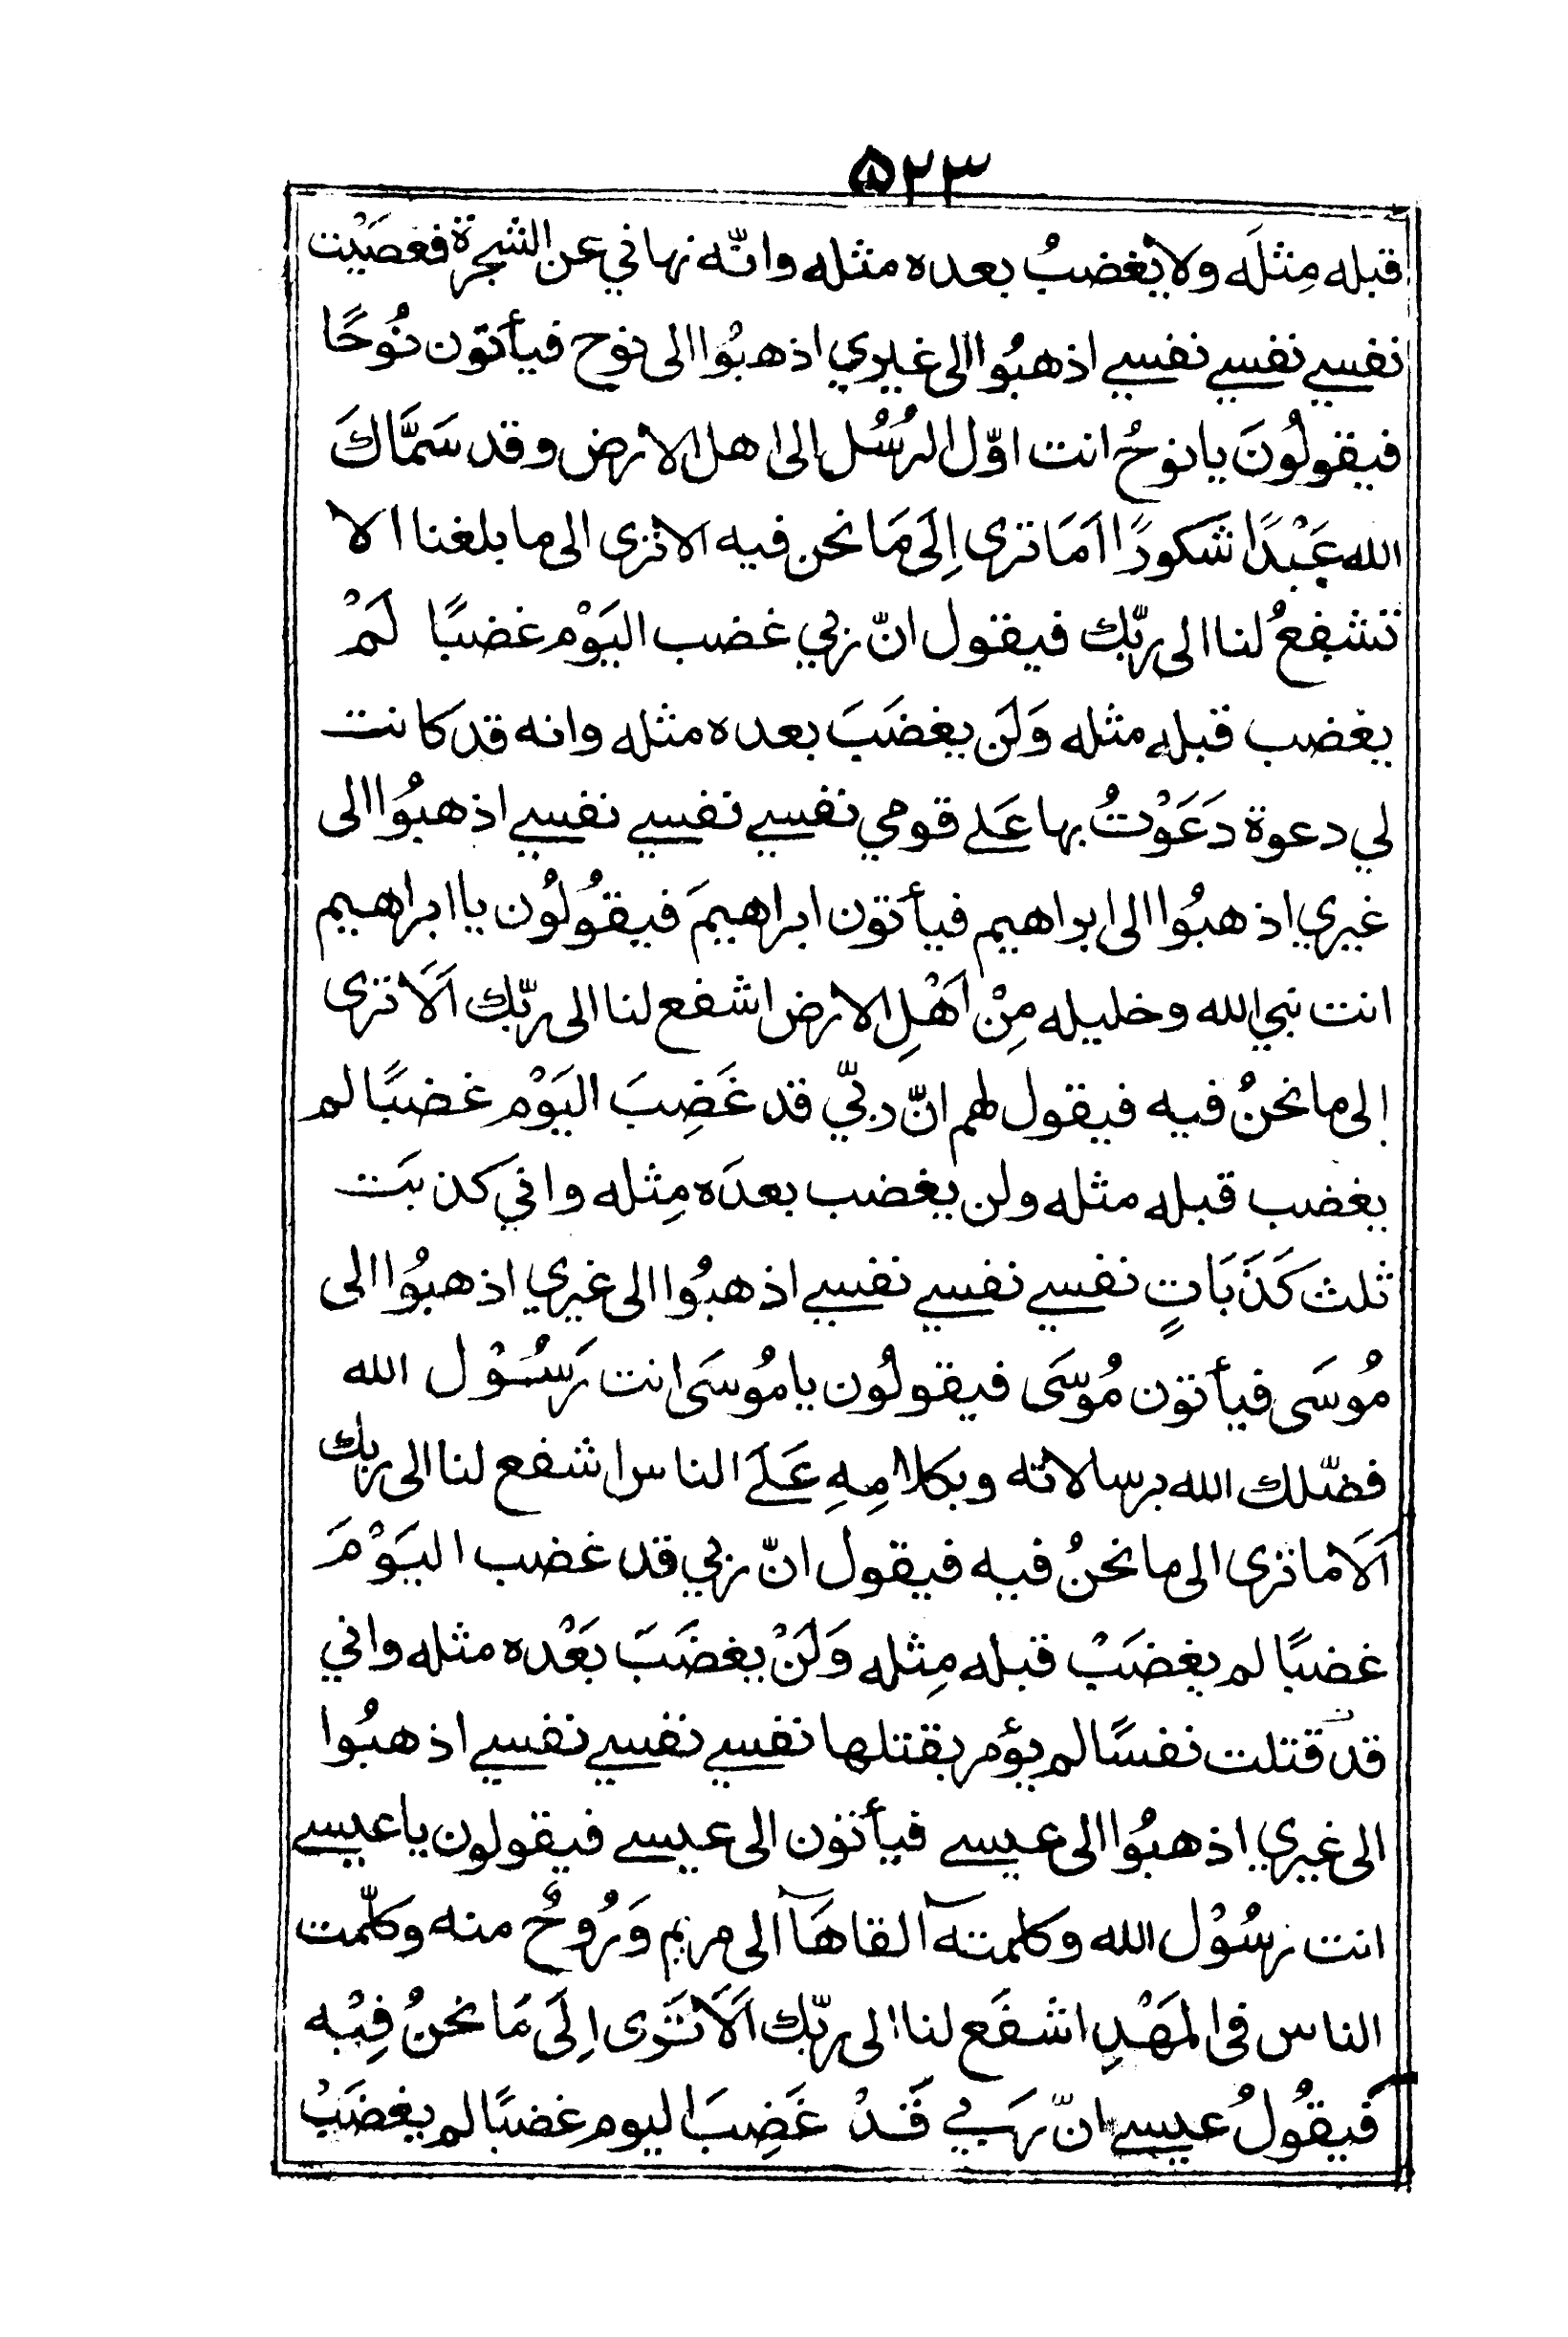 ۵۲۳
قبله مِثلَه ولا يغضبُ بعده مثله وانّه نهاني عن الشجرة فعصَيْت
نفسے نفسے نفسے اذهبُوا الى غيري اذهبُوا الى نوح فيأتون نُوحًا
فيقولُونَ يا نوحُ انت اوّل الرُسُل الى اهل الارض وقد سَمَّاكَ
الله عَبْدًا شَكورًا اَمَا ترى اِلَى مَا نحن فيه الا ترى الى ما بلغنا الا
تشفعُ لنا الى ربّك فيقول انّ ربي غضب اليَوْم غضبًا لَمْ
يغضب قبله مثله وَلَن يغضَبَ بعده مثله وانه قد كانت
لي دعوة دَعَوْتُ بها عَلے قومي نفسے نفسے نفسے اذهبُوا الى
غيري اذهبُوا الى ابراهيم فيأتون ابراهيمَ فيقُولُون يا ابراهيم
انت نبي الله وخليله مِنْ اَهْلِ الارض اشفع لنا الى ربّك اَلَا ترى
الى ما نحنُ فيه فيقول لهم انّ ربّي قد غَضِبَ اليَوْم غضبًا لم
يغضب قبله مثله ولن يغضب بعدَه مِثله واني كذبَت
ثلث كَذَبَاتٍ نفسے نفسے نفسے اذهبُوا الى غيري اذهبُوا الى
مُوسَى فيأتون مُوسَى فيقولُون يا مُوسَى انت رَسُوْل الله
فضّلك الله برسالاته وبكلامِهِ عَلَے الناس اشفع لنا الى ربك
اَلَا ما ترى الى ما نحنُ فيه فيقول انّ ربي قد غضب اليَوْمَ
غضبًا لم يغضَبْ قبله مِثله وَلَنْ يغضَبَ بَعْده مثله واني
قد قتلت نفسًا لم يؤمر بقتلها نفسے نفسے نفسے اذهبُوا
الى غيري اذهبُوا الى عيسے فيأتون الى عيسے فيقولون يا عيسے
انت رسُوْل الله وكلمتهٓ القاهَآ الى مريم وَرُوحٌ منه وكلّمت
الناس فى المَهْدِ اشفَع لنا الى ربّك اَلَا تَرَى اِلَى مَا نحنُ فِيْه
فَيقُولُ عيسے انّ رَبي قَدْ غَضِبَ اليوم غضبًا لم يغضَبْ